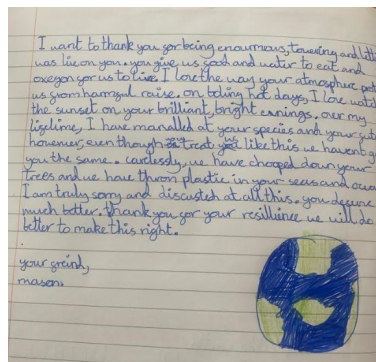 I want to thank you gor being enourmous, towering and letti
was live on you. you give us good and water to eat and
oxegon gor us to live. I love the way your atmosphere prot
us grom harmgul raise. on boling hot days, I love watch
the sunset on your brilliant, bright evnings. over my
ligelime, I have marvalled at your species and your
however, even though you treat us like this we havent g
you the same. carelessly, we have chopped down your
trees and we have thron plastic in your seas and ocea
I am truly sorry and discusted at all this. you deserve
much better. thank you gor your resillience we will do
better to make this right.
your greind,
mason.